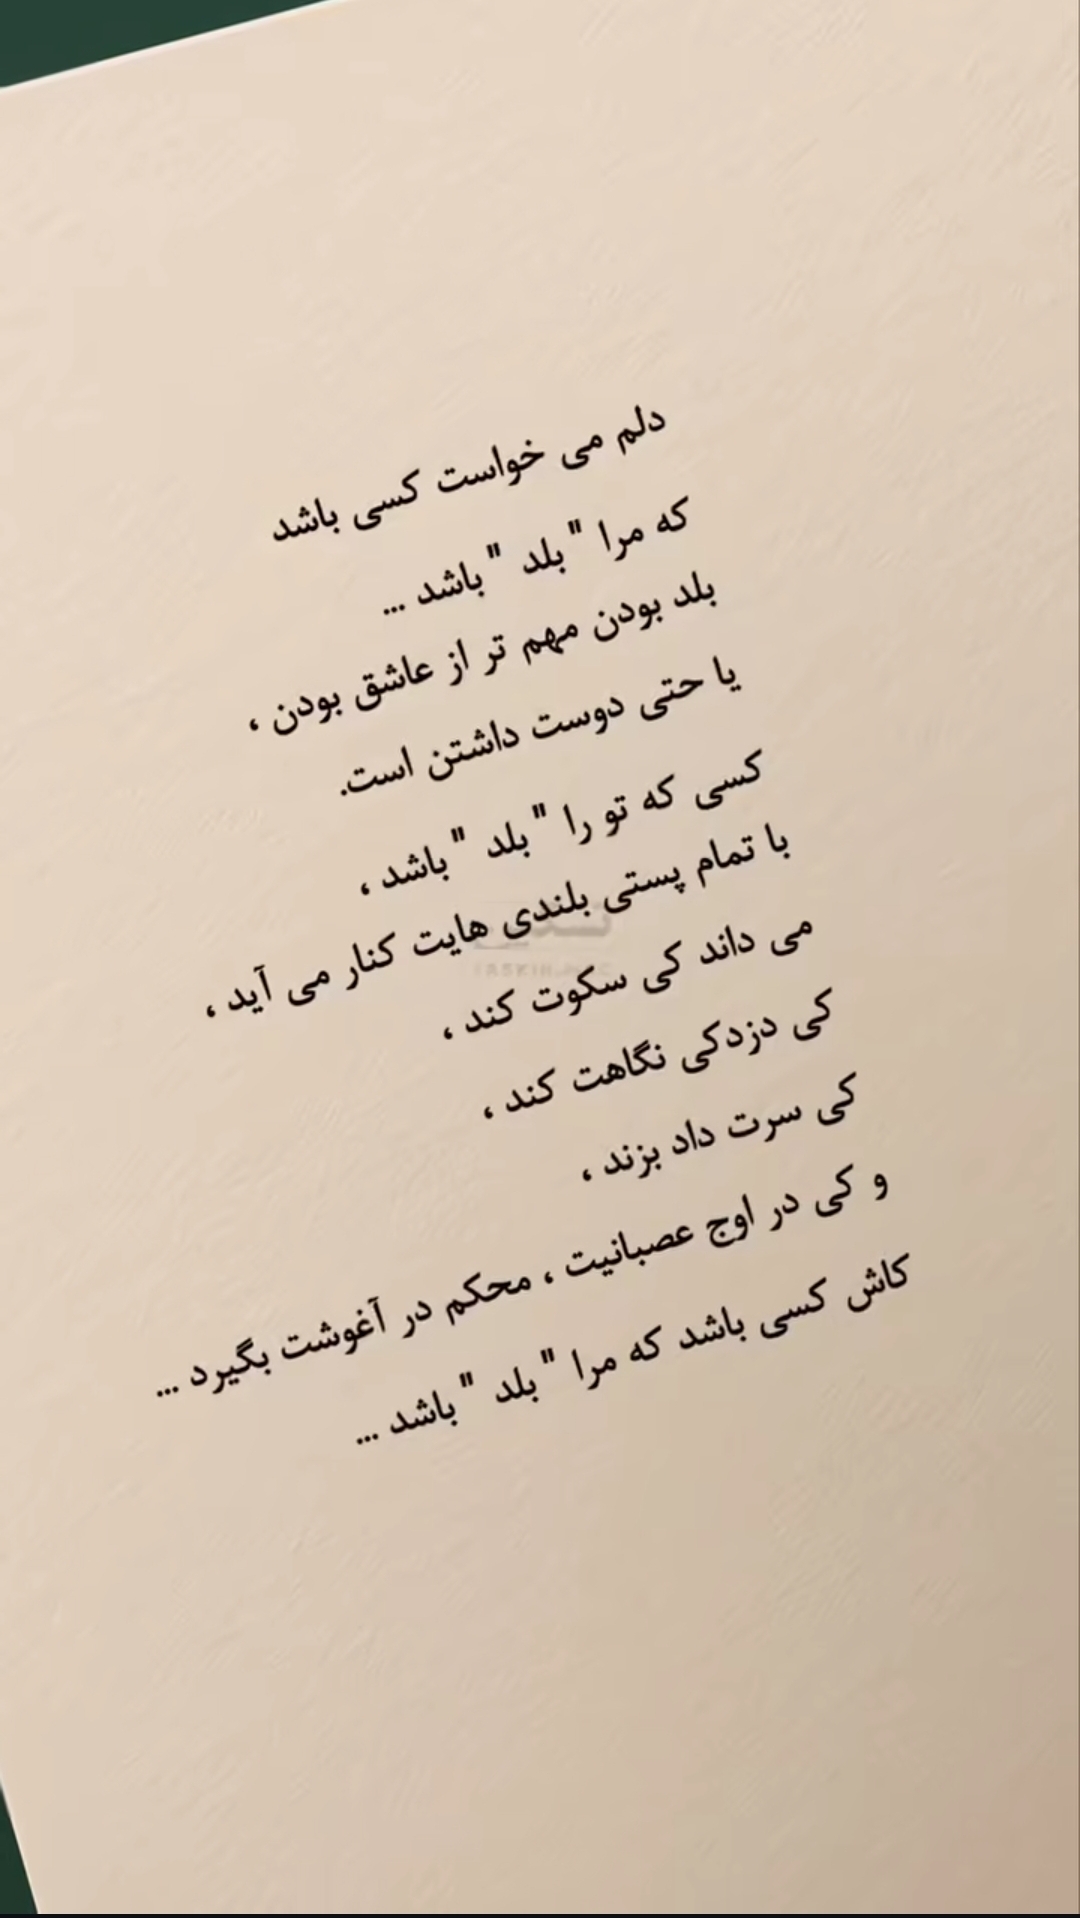 دلم می خواست کسی باشد
که مرا "بلد "باشد ...
بلد بودن مهم تر از عاشق بودن ،
یا حتی دوست داشتن است.
کسی که تو را "بلد "باشد ،
با تمام پستی بلندی هایت کنار می آید ،
می داند کی سکوت کند ،
کی دزدکی نگاهت کند ،
کی سرت داد بزند ،
و کی در اوج عصبانیت ، محکم در آغوشت بگیرد ...
کاش کسی باشد که مرا "بلد "باشد ...